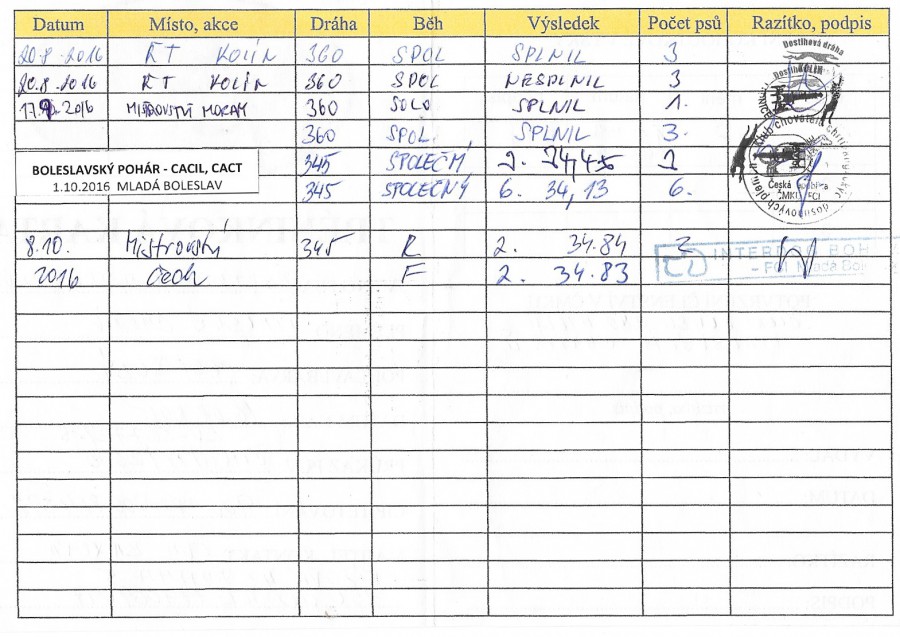 Datum Místo, akce Dráha Běh Výsledek Počet psů Razítko, podpis
20.8.2016 KT KOLÍN 360 SPOL SPLNIL 3
20.8.2016 KT KOLÍN 360 SPOL NESPLNIL 3
17.9.2016 MISTROVSTVÍ 360 SOLO SPLNIL 1.
360 SPOL. SPLNIL 3.
BOLESLAVSKÝ POHÁR - CACIL, CACT
1.10.2016 MLADÁ BOLESLAV
345 SPOLEČNÝ
345 SPOLEČNÝ 6. 34,13 6.
8.10. Mistrovství 345 R 2. 34.84 2
2016 Czech F 2. 34.83
Dostihová dráha
KOLÍN
Klub chovatelů
dostihových plemen
Česká
ČMKU FCI
INTERDOG BOH
- FCI Mladá Bol